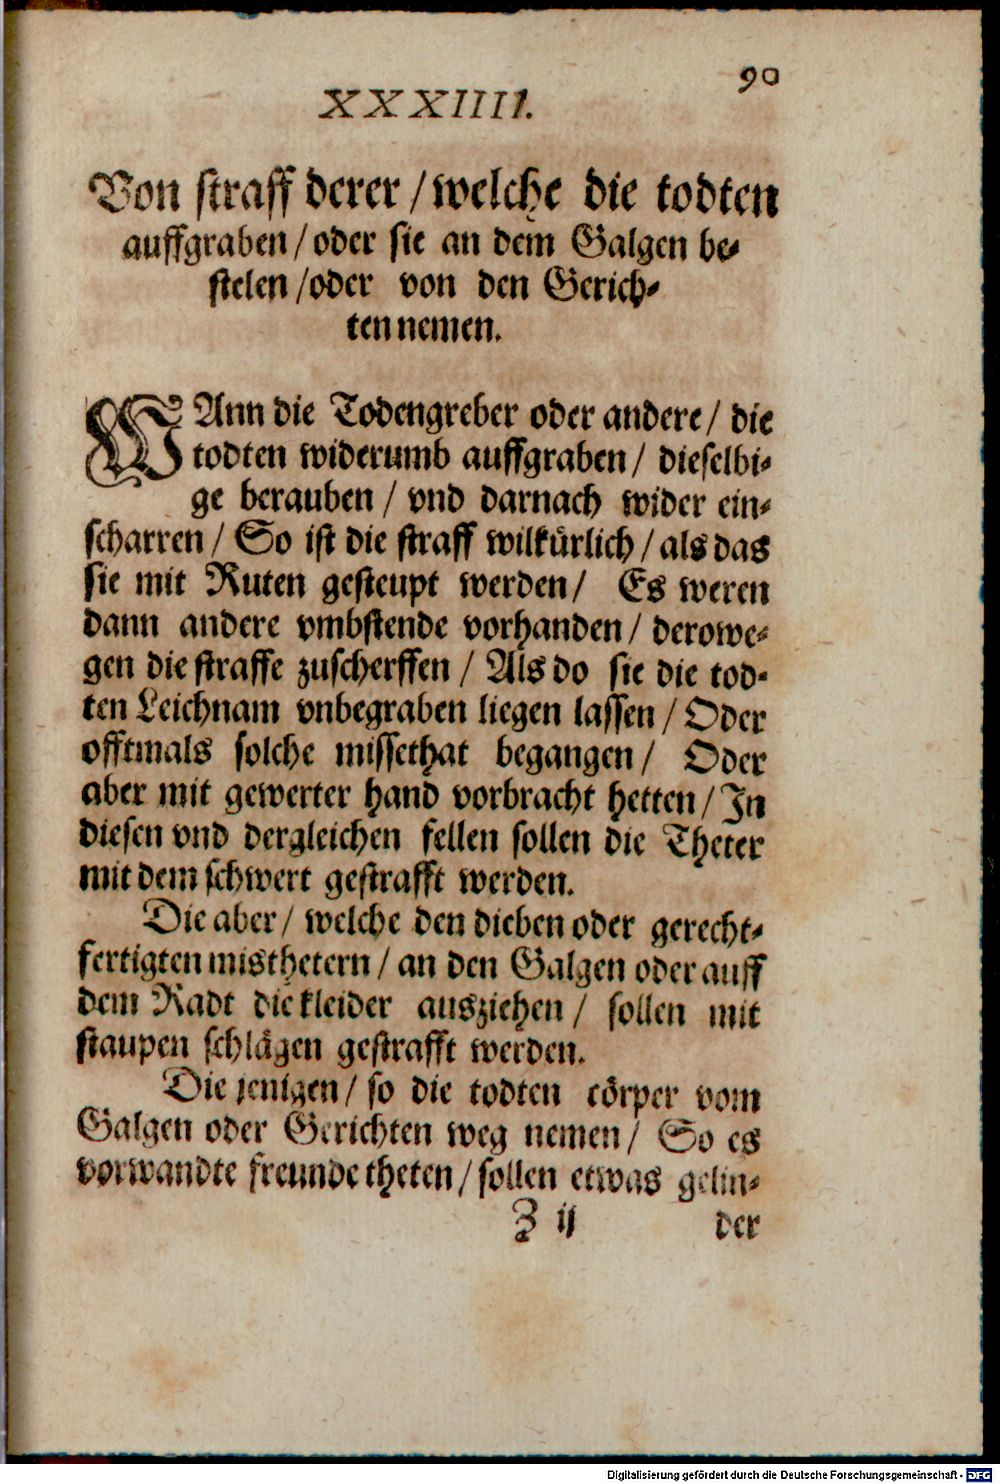 90
XXXIIII.
Von straff derer / welche die todten
auffgraben / oder sie an dem Galgen be-
stelen / oder von den Gerich-
ten nemen.
WAnn die Todengreber oder andere / die
todten widerumb auffgraben / dieselbi-
ge berauben / vnd darnach wider ein-
scharren / So ist die straff wilkürlich / als das
sie mit Ruten gesteupt werden / Es weren
dann andere vmbstende vorhanden / derowe-
gen die straffe zuscherffen / Als do sie die tod-
ten Leichnam vnbegraben liegen lassen / Oder
offtmals solche missethat begangen / Oder
aber mit gewerter hand vorbracht hetten / In
diesen vnd dergleichen fellen sollen die Theter
mit dem schwert gestrafft werden.
Die aber / welche den dieben oder gerecht-
fertigten misthetern / an den Galgen oder auff
dem Radt die kleider ausziehen / sollen mit
staupen schlägen gestrafft werden.
Die jenigen / so die todten cörper vom
Galgen oder Gerichten weg nemen / So es
vorwandte freunde theten / sollen etwas gelin-
Z ij der
Digitalisierung gefördert durch die Deutsche Forschungsgemeinschaft - DFG